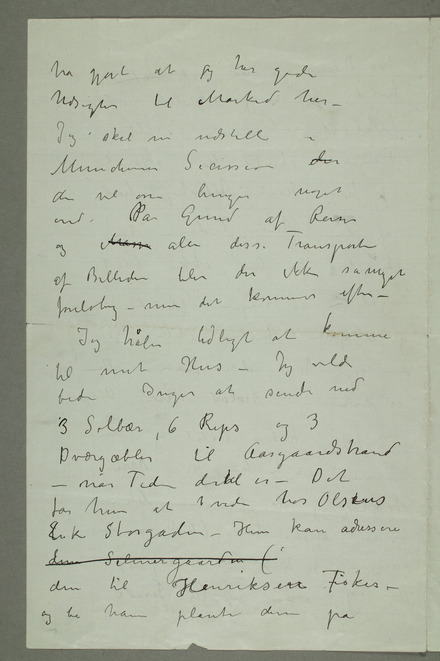 ha gjort at jeg har gode
Udsigter til Marked her –
Jeg skal nu udstille i
Münchener Secession der
der vil om meget
ind. Paa Grund af Reiser
og Masse alle disse Transporter
af Billeder blir der ikke saa meget
foreløbig – men det kommer efter –
Jeg håber tidligt at komme
til mit Hus – Jeg vilde
bede at sende ned
3 Solbær, 6 Rips og 3
Dværgæbler til Aasgaardstrand
– når Tiden dertil er – Det
får hun at vide hos Olsens
Enke Storgaden – Hun kan adressere
dem Selmergaarden (
dem til Henriksen Fisker –
og be ham plante dem på